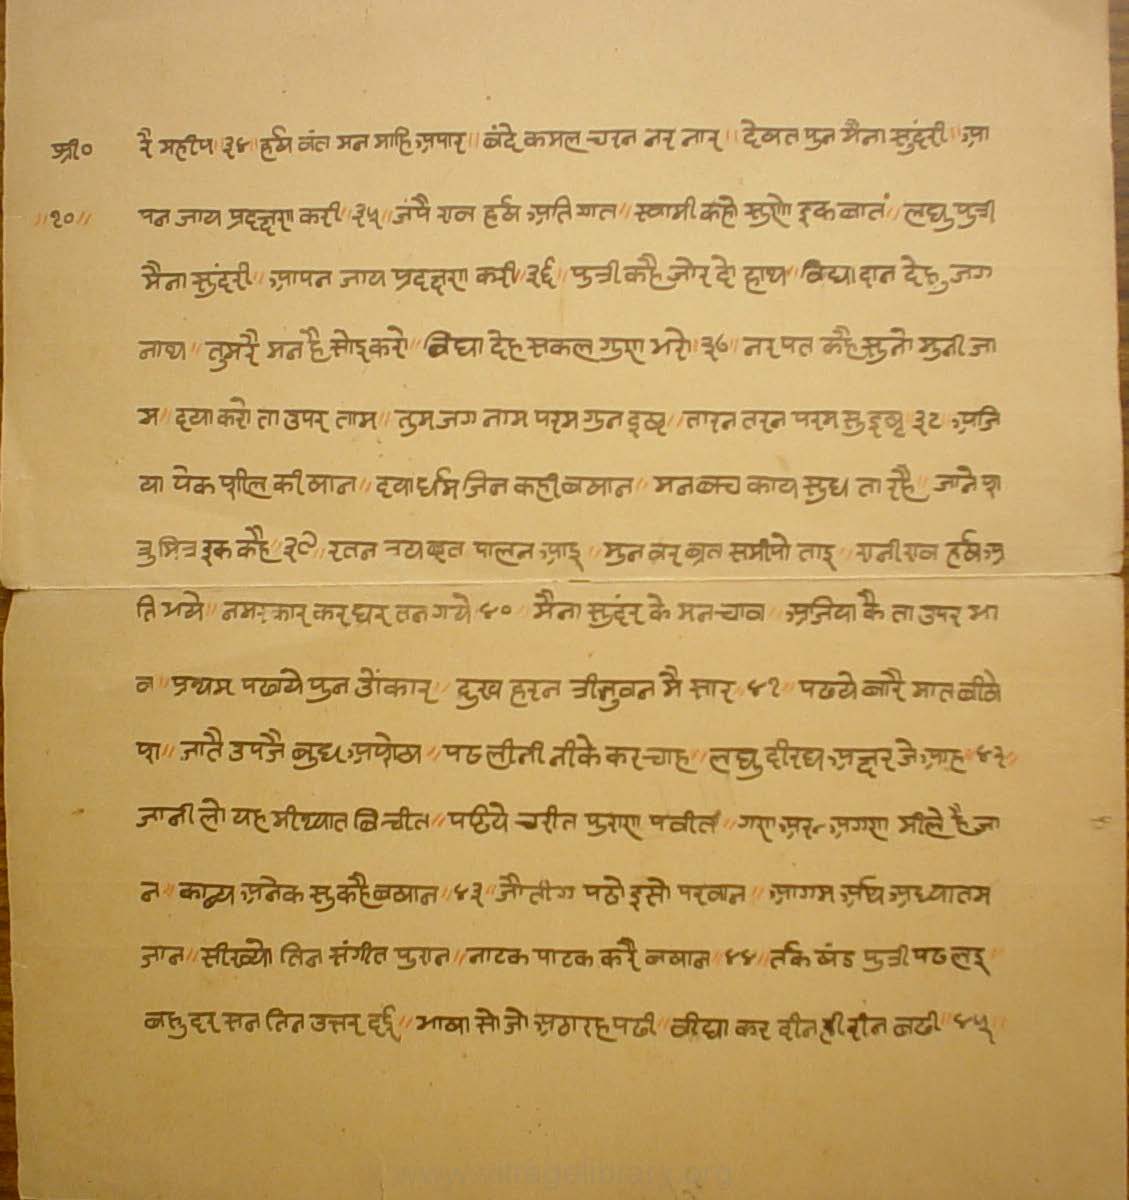 श्री० रै महीप ३४ हर्ष वंत मन माहि अपार ॥ वंदे कमल चरन नर नार ॥ देषत पुन मैना सुंदरी ॥ आ
॥१०॥ पन जाय प्रदक्षणा करी ॥ ३५ ॥ जंपै राव हर्ष अति गात ॥ स्वामी कहो सुणो इक बात ॥ लघु पुत्री
मैना सुंदरी ॥ आपन जाय प्रदक्षणा करी ॥ ३६ ॥ पुत्री कहै जोर दो हाथ ॥ विद्या दान देहु जग
नाथ ॥ तुमरै मन है सोइ करो ॥ विद्या देह सकल गुण भरो ॥ ३७ ॥ नर पत कहै सुनो मुनी जा
म ॥ दया करो ता उपर ताम ॥ तुम जग नाम परम गुन इष्ट ॥ तारन तरन परम सु इष्ट ३८ अजि
या येक शील की षान ॥ दया र्धम जिन कही बषान ॥ मन बच काय सुध ता रहै ॥ जाने श
त्रु मित्र इक कहै ॥ ३९ ॥ रतन त्रय वृत पालन आइ ॥ मुन वर व्रत समीपो ताइ ॥ रानी राव हर्ष अ
ति भये ॥ नमस्कार कर घर तन गये ४० ॥ मैना सुंदर के मन चाव ॥ अजिया कै ता उपर भा
व ॥ प्रथम पढये पुन ओंकार ॥ दुख हरन त्रीभुवन मै सार ॥ ४१ ॥ पढये बारै मात वीशे
षा ॥ जातै उपजै बुध अशेषा ॥ पढ लीनी नीके कर चाह ॥ लघु दीरघ अक्षर जे आह ॥ ४२ ॥
जानी लो यह मीथ्यात वि चीत ॥ पढिये चरीत पुराण पवीत ॥ गण अरु अगण मीले है जा
न ॥ काव्य अनेक सु कहै बषान ॥ ४३ ॥ जौतीग पढो इसो परवान ॥ आगम अर्घ अध्यातम
जान ॥ सीख्यो तिन संगीत पुरान ॥ नाटक पाटक करै बषान ॥ ४४ ॥ र्तक षंड पुत्री पढ लइ
बहु दर सन तिन उत्तर दई ॥ भाषा सो जो अठारह पढी ॥ वीद्या कर दीन ही दीन बढी ॥ ४५ ॥
www.vitragelibrary.org